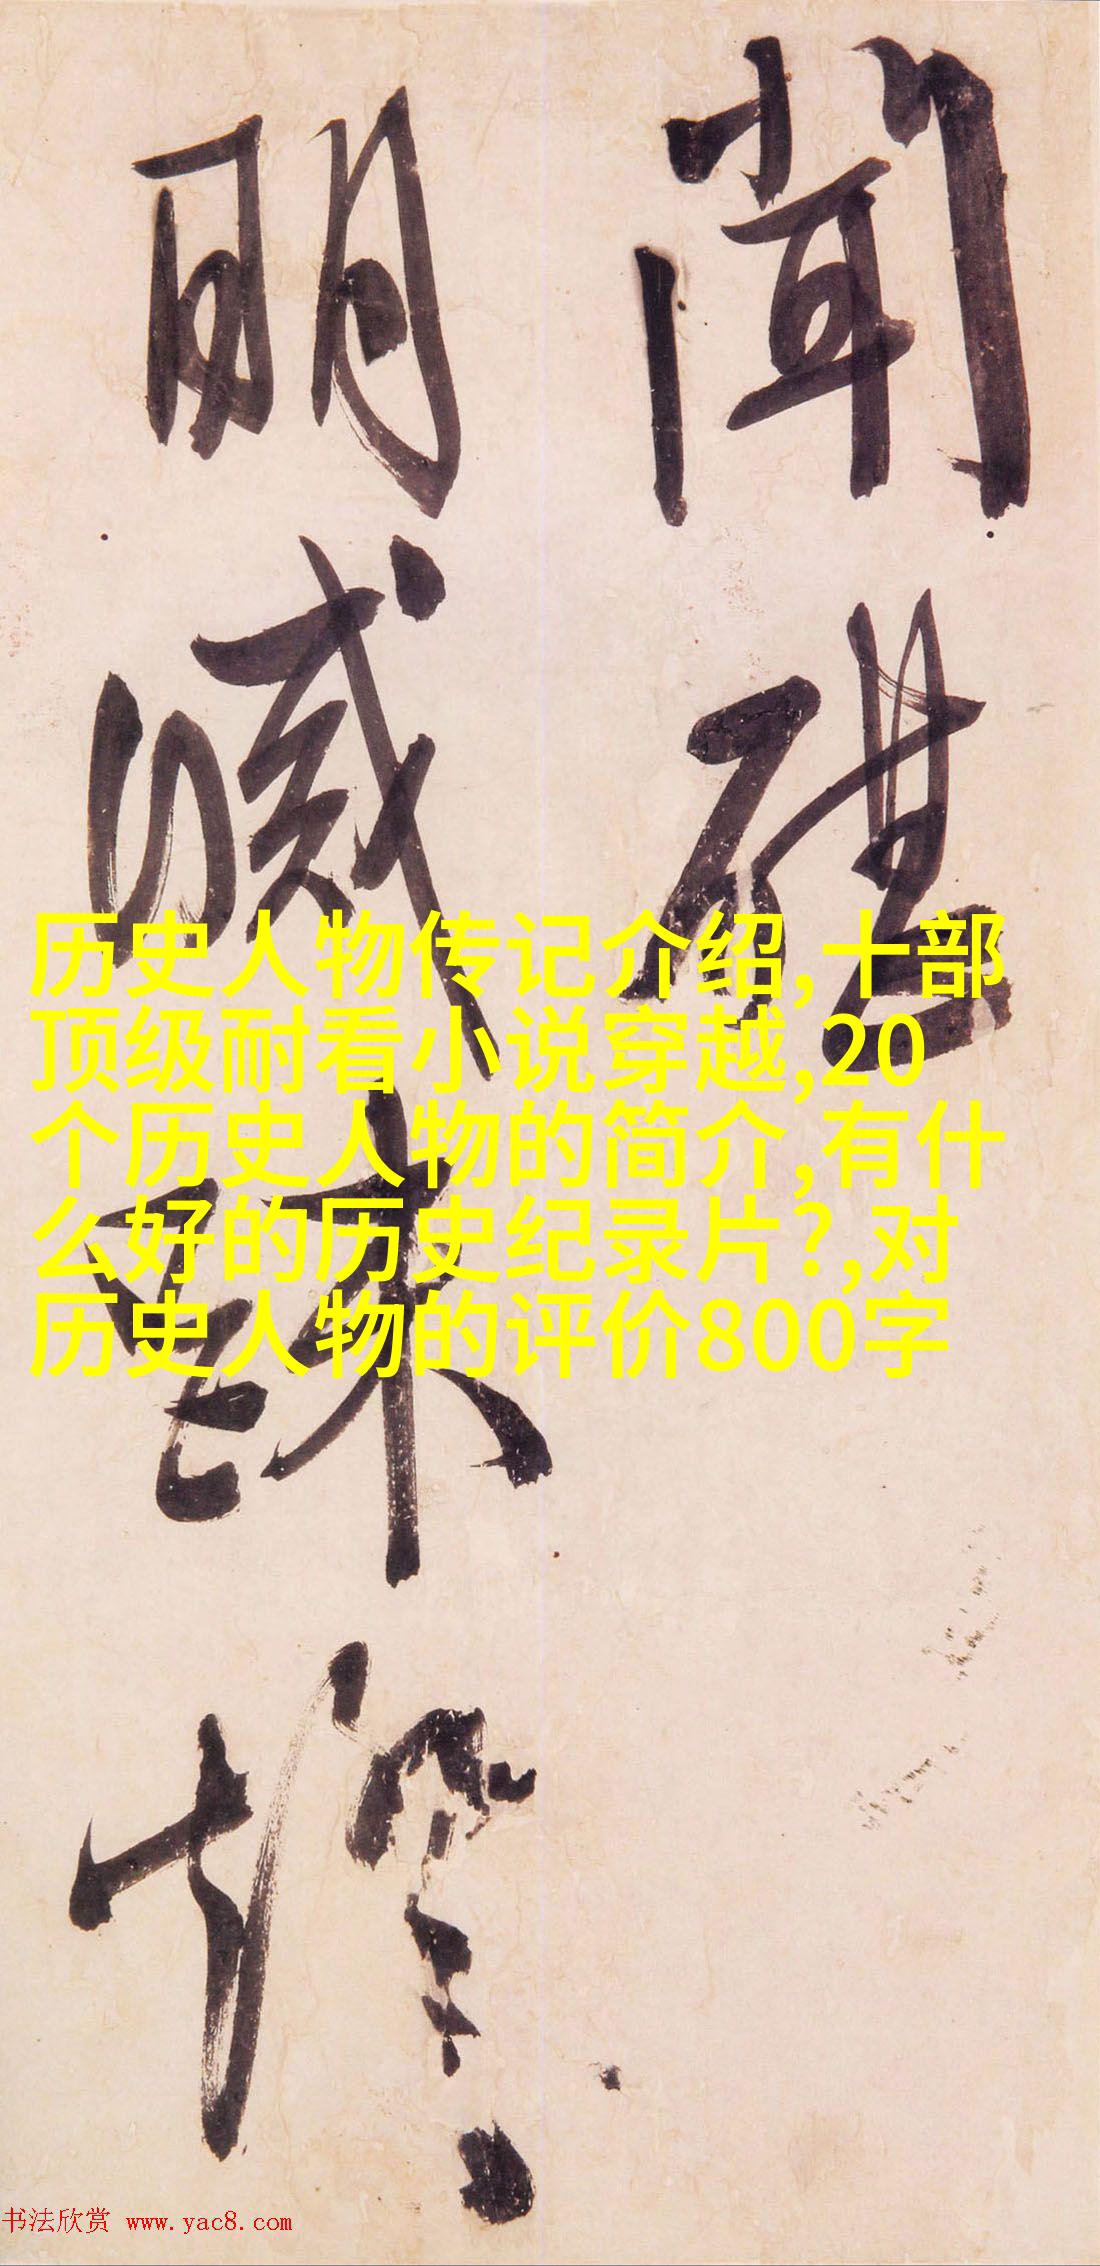 聞
明
历史人物传记介绍,十部
顶级耐看小说穿越,20
个历史人物的简介,有什
么好的历史纪录片?,对
历史人物的评价800字
书法欣赏 www.yac8.com